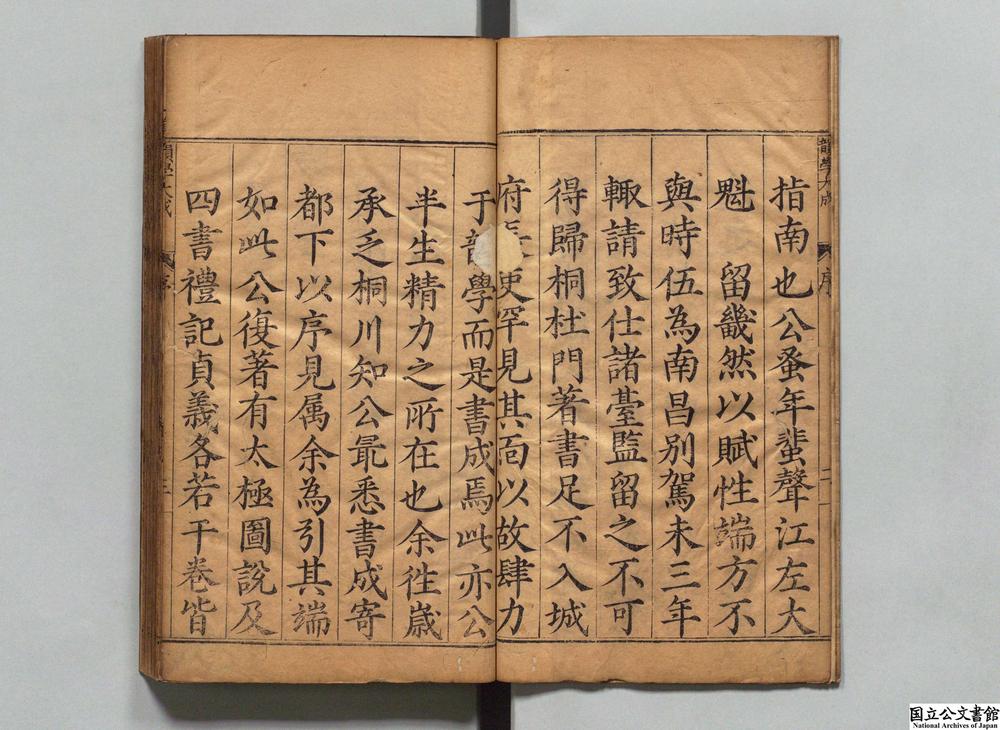 韻學大成
序
二
指南也公蚤年蜚聲江左大
魁 留畿然以賦性端方不
與時伍為南昌別駕未三年
輙請致仕諸臺監留之不可
得歸桐杜門著書足不入城
府 吏罕見其面以故肆力
于 學而是書成焉此亦公
半生精力之所在也余徃歲
承乏桐川知公最悉書成寄
都下以序見属余為引其端
如此公復著有太極圖說及
四書禮記貞義各若干卷皆
韻學大成
序
国立公文書館
National Archives of Japan